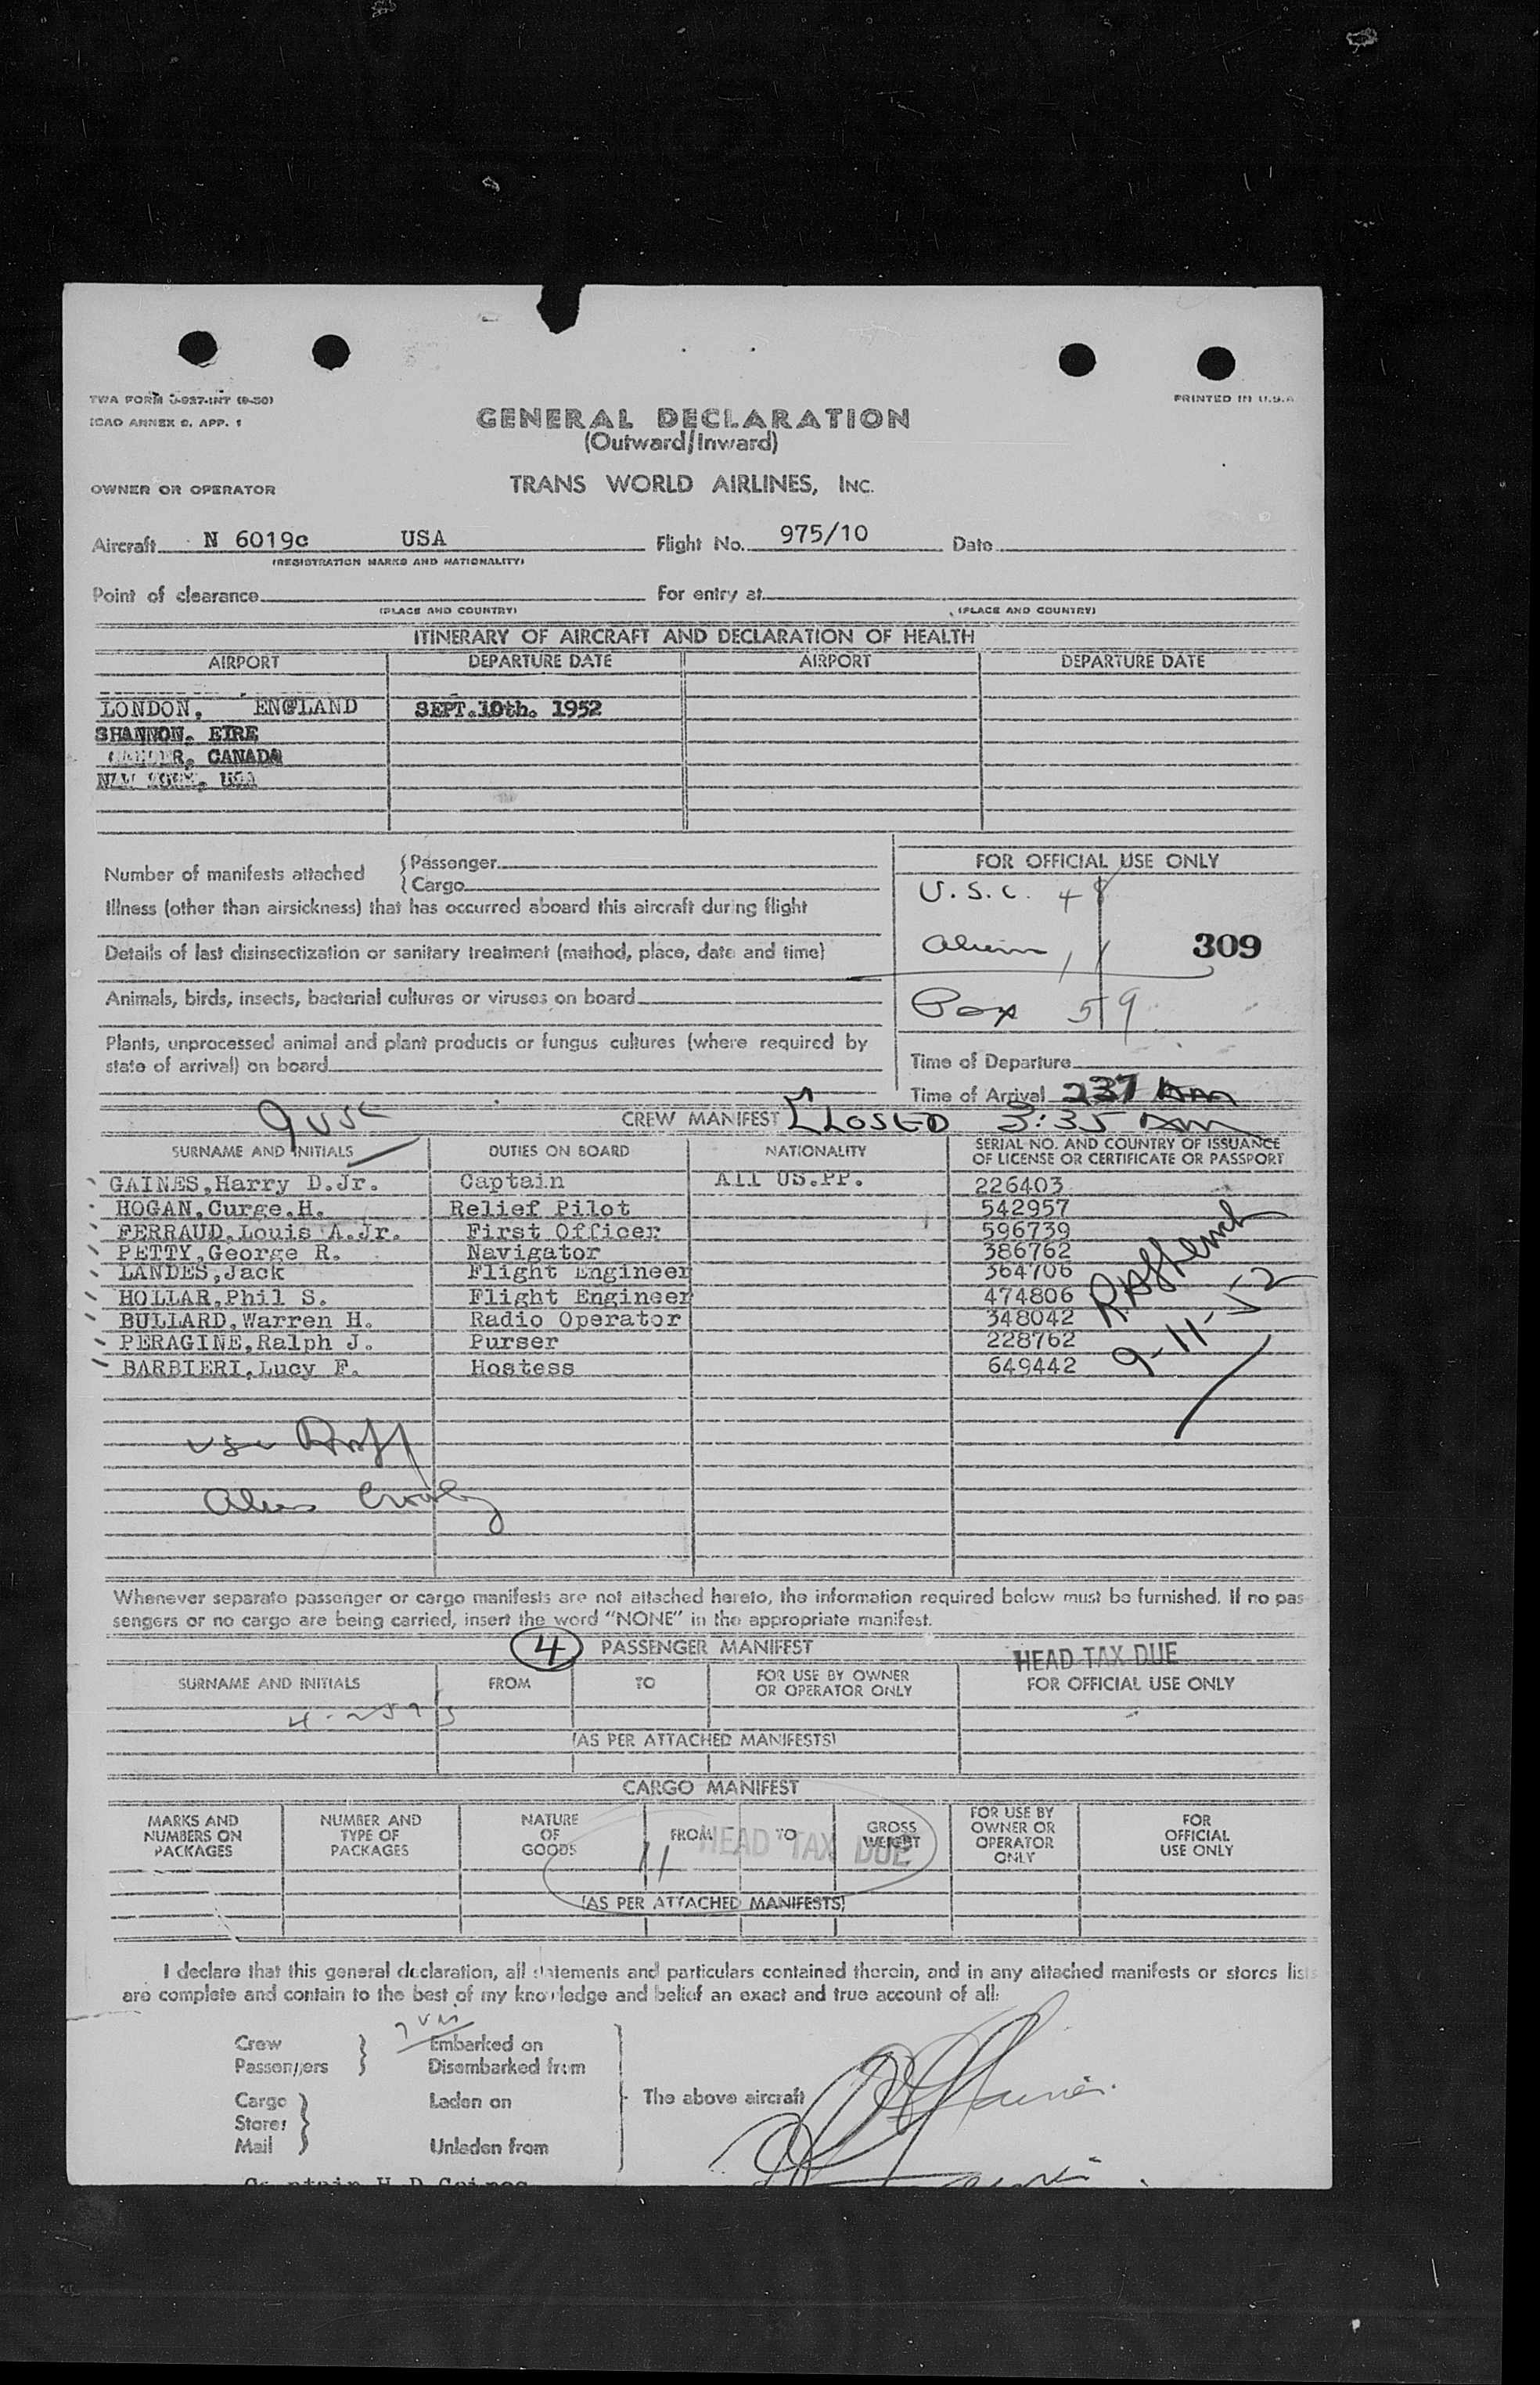 TWA FORM J-927-INT (9-50)
PRINTED IN U.S.A.
ICAO ANNEX 9. APP. 1
GENERAL DECLARATION
(Outward/Inward)
OWNER OR OPERATOR TRANS WORLD AIRLINES, INC.
Aircraft N 6019c USA Flight No. 975/10 Date
(REGISTRATION MARKS AND NATIONALITY)
Point of clearance For entry at
(PLACE AND COUNTRY) (PLACE AND COUNTRY)
ITINERARY OF AIRCRAFT AND DECLARATION OF HEALTH
AIRPORT DEPARTURE DATE AIRPORT DEPARTURE DATE
LONDON, ENGLAND SEPT.10th. 1952
SHANNON. EIRE
CANADA
NEW YORK, USA
Number of manifests attached { Passenger
{ Cargo
FOR OFFICIAL USE ONLY
U.S.C. 48
Illness (other than airsickness) that has occurred aboard this aircraft during flight
Alien 11 309
Details of last disinsectization or sanitary treatment (method, place, date and time)
Animals, birds, insects, bacterial cultures or viruses on board
Pax 59
Plants, unprocessed animal and plant products or fungus cultures (where required by
state of arrival) on board
Time of Departure
Time of Arrival 237 Am
9 USC CREW MANIFEST CLOSED 3:35 Am
SURNAME AND INITIALS DUTIES ON BOARD NATIONALITY SERIAL NO. AND COUNTRY OF ISSUANCE
OF LICENSE OR CERTIFICATE OR PASSPORT
GAINES,Harry D.Jr. Captain All US.PP. 226403
HOGAN,Curge.H. Relief Pilot 542957
FERRAUD,Louis A.Jr. First Officer 596739
PETTY,George R. Navigator 386762
LANDES,Jack Flight Engineer 364706
HOLLAR,Phil S. Flight Engineer 474806
BULLARD,Warren H. Radio Operator 348042
PERAGINE,Ralph J. Purser 228762
BARBIERI,Lucy F. Hostess 649442
9-11-52
usc
Alien
Whenever separate passenger or cargo manifests are not attached hereto, the information required below must be furnished. If no pas-
sengers or no cargo are being carried, insert the word "NONE" in the appropriate manifest.
4 PASSENGER MANIFEST HEAD TAX DUE
SURNAME AND INITIALS FROM TO FOR USE BY OWNER
OR OPERATOR ONLY FOR OFFICIAL USE ONLY
(AS PER ATTACHED MANIFESTS)
CARGO MANIFEST
MARKS AND
NUMBERS ON
PACKAGES
NUMBER AND
TYPE OF
PACKAGES
NATURE
OF
GOODS
FROM TO
GROSS
WEIGHT
FOR USE BY
OWNER OR
OPERATOR
ONLY
FOR
OFFICIAL
USE ONLY
11 HEAD TAX DUE
(AS PER ATTACHED MANIFESTS)
I declare that this general declaration, all statements and particulars contained therein, and in any attached manifests or stores lists
are complete and contain to the best of my knowledge and belief an exact and true account of all:
Crew } Embarked on
Passengers } Disembarked from
Cargo } Laden on The above aircraft
Stores }
Mail } Unladen from
Captain H.D.Gaines